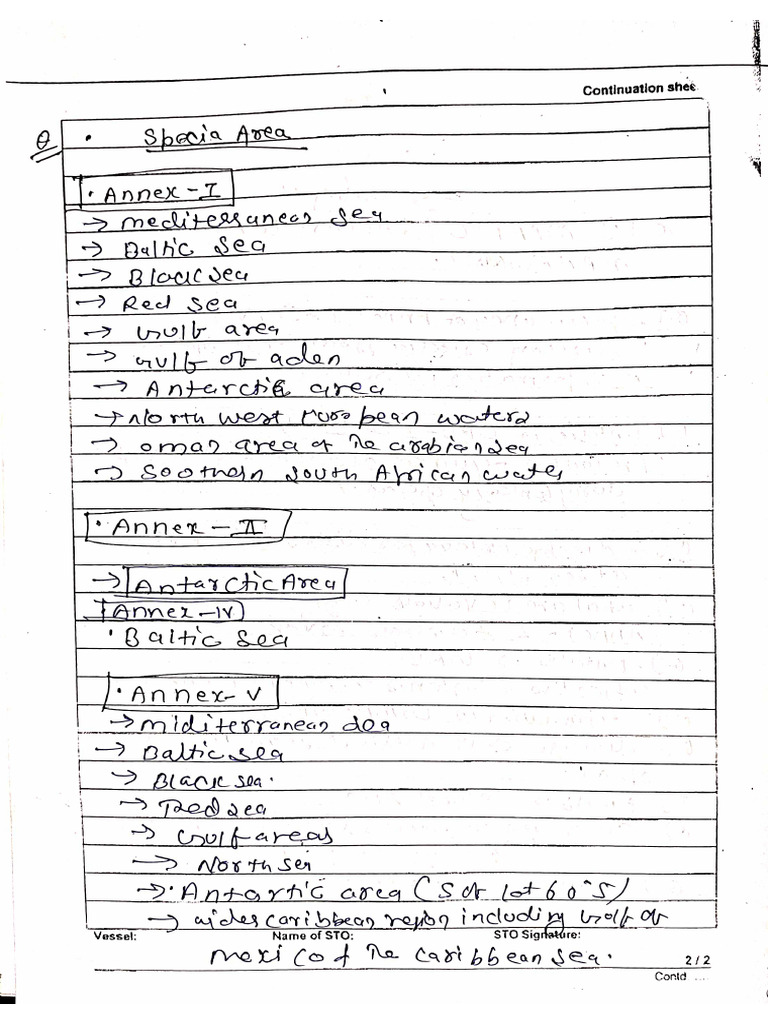 Continuation shee
Q • Specia Area
• Annex - I
→ mediterranean sea
→ Baltic sea
→ Black sea
→ Red sea
→ Gulf area
→ Gulf of aden
→ Antarctic area
→ North west European waters
→ oman area of The arabian sea
→ Soothern south African water
• Annex - II
→ Antarctic Area
Annex - IV
• Baltic sea
• Annex - V
→ miditerranean sea
→ Baltic sea
→ Black sea.
→ Red sea
→ Gulf areas
→ North sea
→ • Antartic area (S of lat 60°S)
→ wides caribbean region including Gulf of
Vessel: Name of STO: STO Signature:
mexico of The caribbean sea.
2 / 2
Contd ...